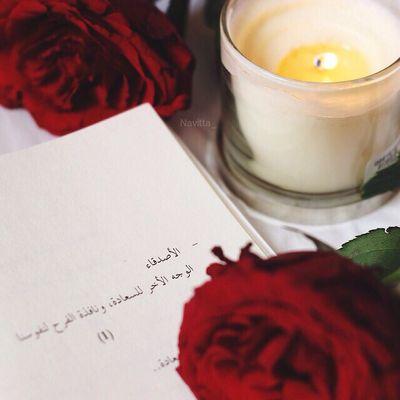 Navitta_
– الأصدقاء
الوجه الآخر للسعادة، ونافذة الفرح لنفوسنا
(1)
سعادة..